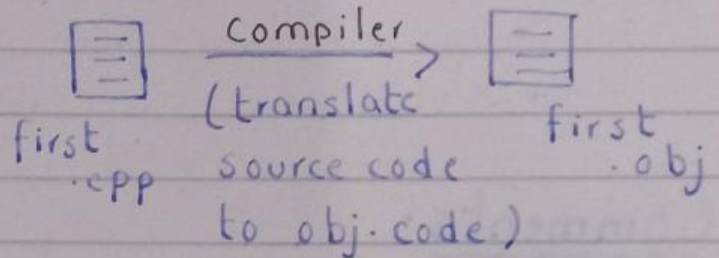 compiler
(translate
source code
to obj. code)
first
.cpp
first
.obj